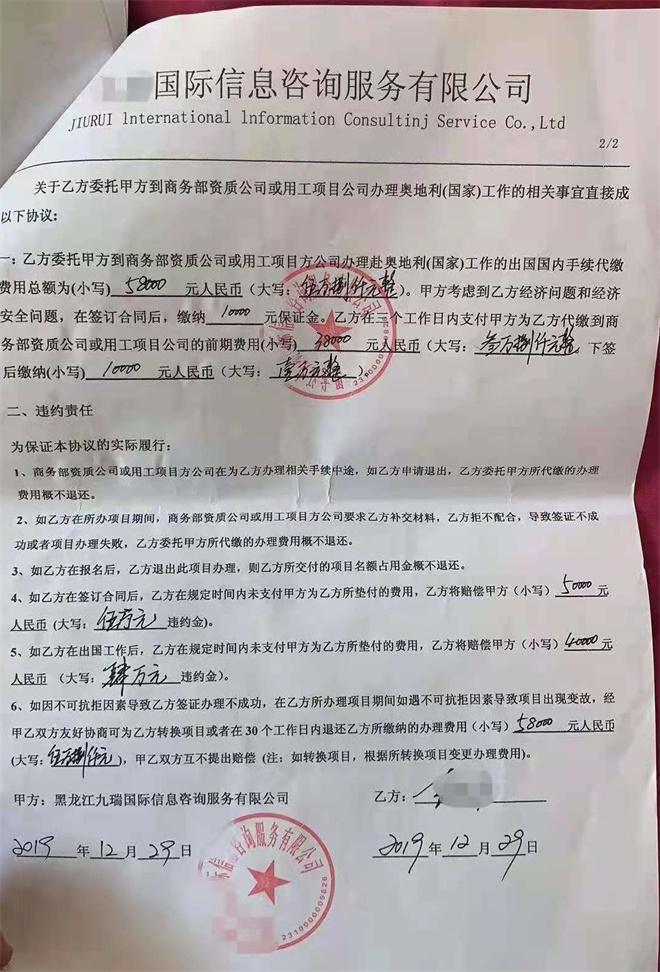 国际信息咨询服务有限公司
JIURUI International Information Consultinj Service Co.,Ltd
2/2
关于乙方委托甲方到商务部资质公司或用工项目公司办理奥地利(国家)工作的相关事宜直接成
以下协议：
一：乙方委托甲方到商务部资质公司或用工项目方公司办理赴奥地利(国家)工作的出国国内手续代缴
费用总额为(小写) 58000 元人民币（大写：伍万捌仟元整）。甲方考虑到乙方经济问题和经济
安全问题，在签订合同后，缴纳 10000 元保证金。乙方在三个工作日内支付甲方为乙方代缴到商
务部资质公司或用工项目公司的前期费用(小写) 38000 元人民币（大写：叁万捌仟元整。下签
后缴纳(小写) 10000 元人民币（大写：壹万元整）。
二、违约责任
为保证本协议的实际履行：
1、商务部资质公司或用工项目方公司在为乙方办理相关手续中途，如乙方申请退出，乙方委托甲方所代缴的办理
费用概不退还。
2、如乙方在所办项目期间，商务部资质公司或用工项目方公司要求乙方补交材料，乙方拒不配合，导致签证不成
功或者项目办理失败，乙方委托甲方所代缴的办理费用概不退还。
3、如乙方在报名后，乙方退出此项目办理，则乙方所交付的项目名额占用金概不退还。
4、如乙方在签订合同后，乙方在规定时间内未支付甲方为乙方所垫付的费用，乙方将赔偿甲方（小写）50000 元
人民币（大写：伍万元 违约金)。
5、如乙方在出国工作后，乙方在规定时间内未支付甲方为乙方所垫付的费用，乙方将赔偿甲方（小写）40000 元
人民币 （大写：肆万元 违约金)。
6、如因不可抗拒因素导致乙方签证办理不成功，在乙方所办理项目期间如遇不可抗拒因素导致项目出现变故，经
甲乙双方友好协商可为乙方转换项目或者在 30 个工作日内退还乙方所缴纳的办理费用（小写）58000 元人民币
(大写：伍万捌仟元)，甲乙双方互不提出赔偿（注：如转换项目，根据所转换项目变更办理费用)。
甲方：黑龙江九瑞国际信息咨询服务有限公司 乙方：
2019 年 12 月 29 日 2019 年 12 月 29 日
咨询服务有限公司
2310000009826